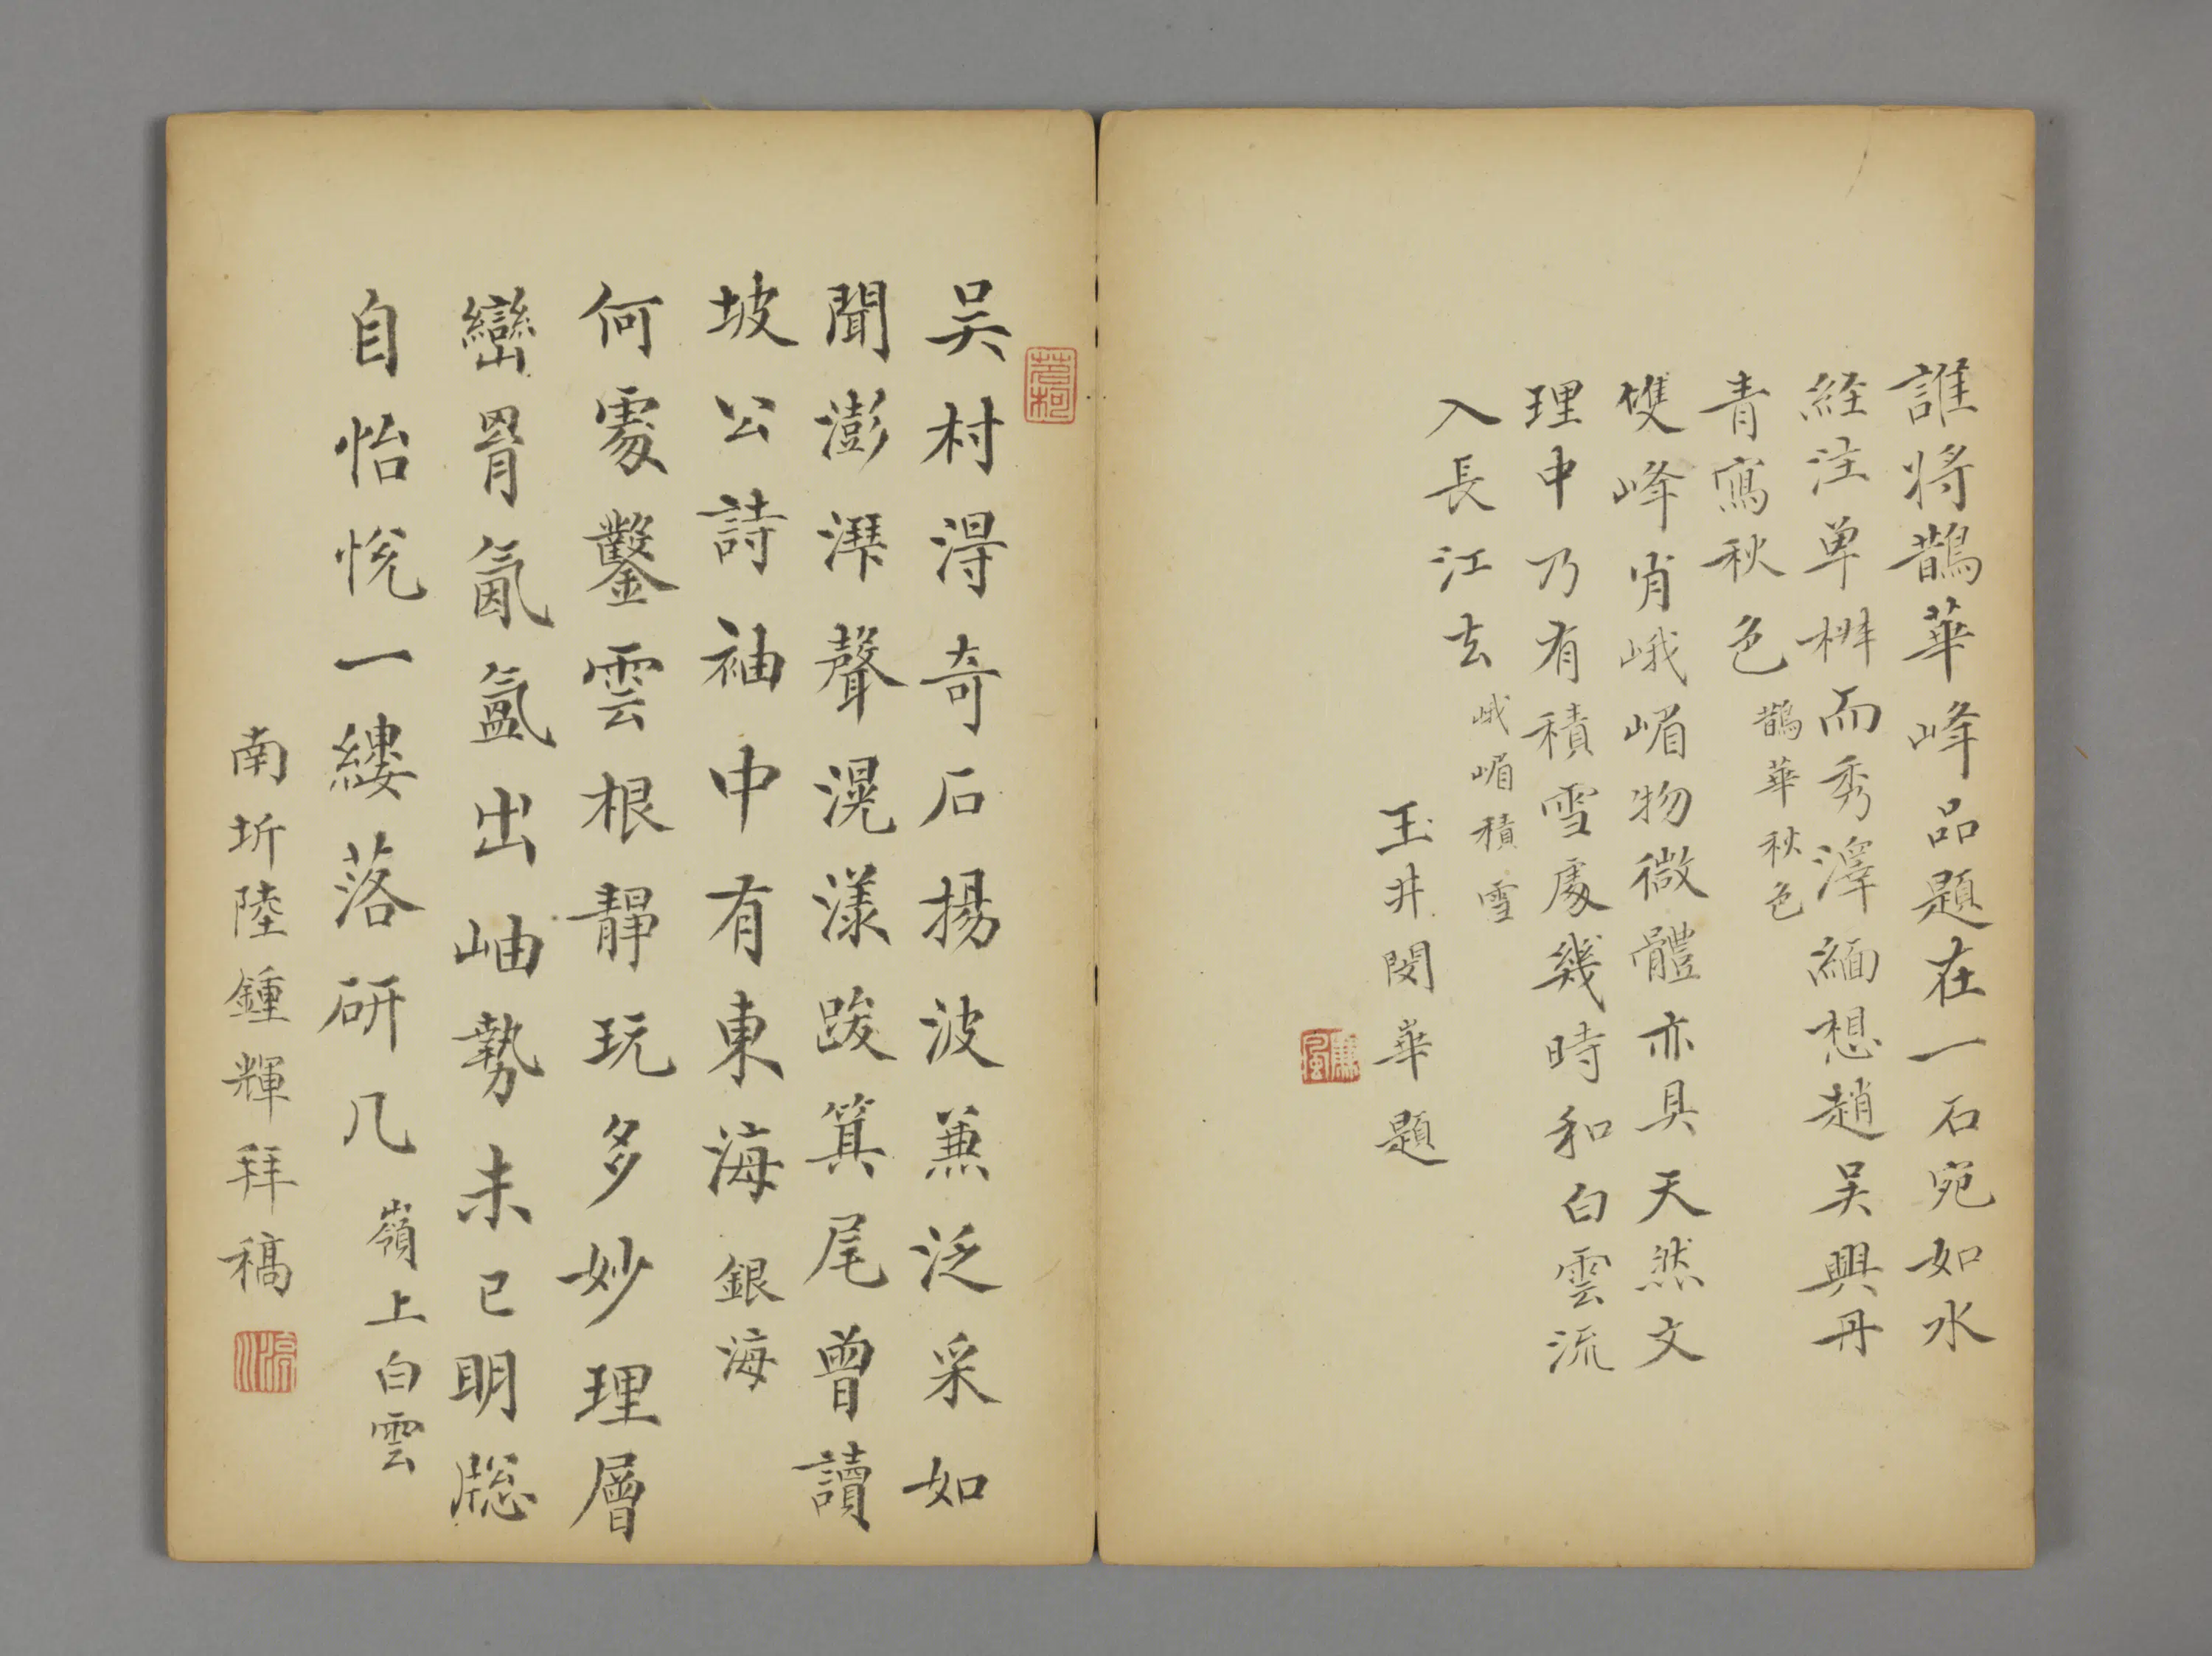 誰将鵲華峰品題在一石宛如水
経注单椒而秀澤緬想趙吴興丹
青寫秋色 鵲華秋色
雙峰肖峨嵋物微體亦具天然文
理中乃有積雪處幾時和白雲流
入長江去 峨嵋積雪
玉井閔華題
廉風
吴村淂奇石揚波蒸泛采如
聞澎湃聲滉漾跋箕尾曾讀
坡公詩袖中有東海 銀海
何處鑿雲根靜玩多妙理層
巒罥氤氳出岫勢未已明牎
自怡悅一縷落研几 嶺上白雲
南圻陸鍾輝拜稿